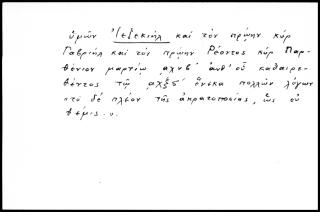 ὑμῶν Ἰεζεκιὴλ καὶ τὸν πρώην κύρ
Γαβριὴλ καὶ τὸν πρώην Ρέοντος κύρ Παρ-
θένιον μαρτίῳ αχνβ´ ἀνθ' οὗ καθαιρε-
θέντος τῷ αχξϛ´ ἕνεκα πολλῶν λόγων
τὸ δὲ πλέον τῆς ἀκρατοποσίας, ὡς οὐ
θέμις.